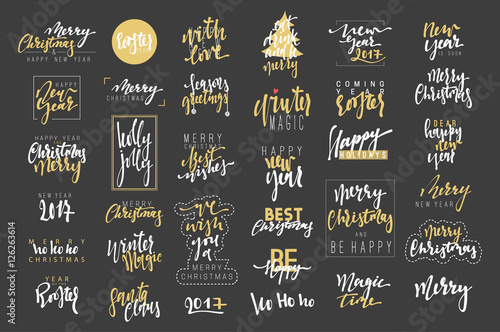 Merry
Christmas
& HAPPY NEW YEAR
HAPPY
New
Year
HAPPY YEAR
Christmas
Merry
NEW YEAR
2017
MERRY
ho ho ho
CHRISTMAS
YEAR
OF THE
Rooster
Rooster
Merry
CHRISTMAS
holly
jolly
Merry
Christmas
Winter
Magic
Santa
Claus
with
love
Seasons
greetings
MERRY
CHRISTMAS
Best
wishes
We
wish
you
a
MERRY
CHRISTMAS
2017
eat
drink
merry
Winter
MAGIC
HAPPY
new
year
BEST
Christmas
BE
Happy
Ho Ho Ho
New
Year
2017
COMING
YEAR
rooster
Happy
HOLIDAYS
Merry
Christmas
AND
BE HAPPY
Magic
time
New
Year
IS SOON
Merry
Christmas
DEAR
happy
new
year
Merry
NEW YEAR
Merry
Christmas
Merry
Adobe Stock | #126263614